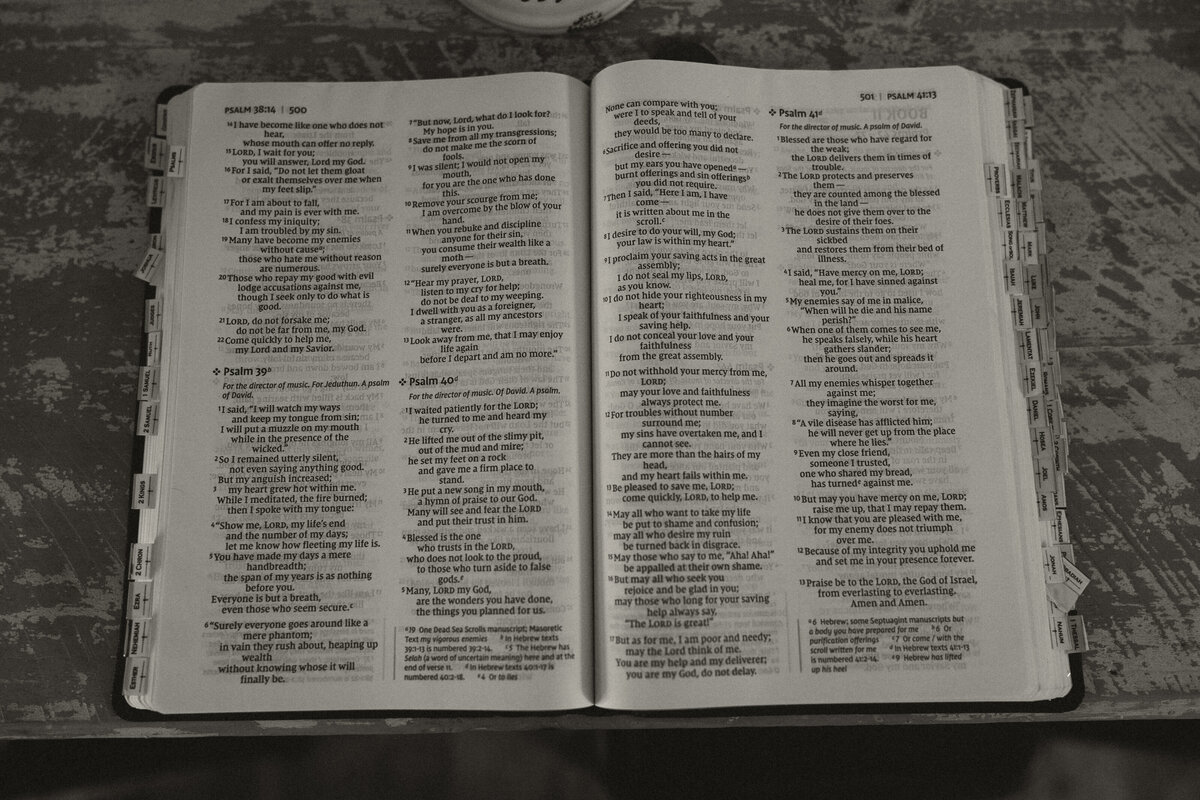 PSALM 38:14 | 500
14 I have become like one who does not
hear,
whose mouth can offer no reply.
15 LORD, I wait for you;
you will answer, Lord my God.
16 For I said, “Do not let them gloat
or exalt themselves over me when
my feet slip.”
17 For I am about to fall,
and my pain is ever with me.
18 I confess my iniquity;
I am troubled by my sin.
19 Many have become my enemies
without cause a;
those who hate me without reason
are numerous.
20 Those who repay my good with evil
lodge accusations against me,
though I seek only to do what is
good.
21 LORD, do not forsake me;
do not be far from me, my God.
22 Come quickly to help me,
my Lord and my Savior.
Psalm 39 b
For the director of music. For Jeduthun. A psalm
of David.
1 I said, “I will watch my ways
and keep my tongue from sin;
I will put a muzzle on my mouth
while in the presence of the
wicked.”
2 So I remained utterly silent,
not even saying anything good.
But my anguish increased;
3 my heart grew hot within me.
While I meditated, the fire burned;
then I spoke with my tongue:
4 “Show me, LORD, my life’s end
and the number of my days;
let me know how fleeting my life is.
5 You have made my days a mere
handbreadth;
the span of my years is as nothing
before you.
Everyone is but a breath,
even those who seem secure. c
6 “Surely everyone goes around like a
mere phantom;
in vain they rush about, heaping up
wealth
without knowing whose it will
finally be.
7 “But now, Lord, what do I look for?
My hope is in you.
8 Save me from all my transgressions;
do not make me the scorn of
fools.
9 I was silent; I would not open my
mouth,
for you are the one who has done
this.
10 Remove your scourge from me;
I am overcome by the blow of your
hand.
11 When you rebuke and discipline
anyone for their sin,
you consume their wealth like a
moth —
surely everyone is but a breath.
12 “Hear my prayer, LORD,
listen to my cry for help;
do not be deaf to my weeping.
I dwell with you as a foreigner,
a stranger, as all my ancestors
were.
13 Look away from me, that I may enjoy
life again
before I depart and am no more.”
Psalm 40 d
For the director of music. Of David. A psalm.
1 I waited patiently for the LORD;
he turned to me and heard my
cry.
2 He lifted me out of the slimy pit,
out of the mud and mire;
he set my feet on a rock
and gave me a firm place to
stand.
3 He put a new song in my mouth,
a hymn of praise to our God.
Many will see and fear the LORD
and put their trust in him.
4 Blessed is the one
who trusts in the LORD,
who does not look to the proud,
to those who turn aside to false
gods. e
5 Many, LORD my God,
are the wonders you have done,
the things you planned for us.
a 19 One Dead Sea Scrolls manuscript; Masoretic
Text my vigorous enemies b In Hebrew texts
39:1-13 is numbered 39:2-14. c 5 The Hebrew has
Selah (a word of uncertain meaning) here and at the
end of verse 11. d In Hebrew texts 40:1-17 is
numbered 40:2-18. e 4 Or to lies
501 | PSALM 41:13
None can compare with you;
were I to speak and tell of your
deeds,
they would be too many to declare.
6 Sacrifice and offering you did not
desire —
but my ears you have opened a —
burnt offerings and sin offerings b
you did not require.
7 Then I said, “Here I am, I have
come —
it is written about me in the
scroll. c
8 I desire to do your will, my God;
your law is within my heart.”
9 I proclaim your saving acts in the great
assembly;
I do not seal my lips, LORD,
as you know.
10 I do not hide your righteousness in my
heart;
I speak of your faithfulness and your
saving help.
I do not conceal your love and your
faithfulness
from the great assembly.
11 Do not withhold your mercy from me,
LORD;
may your love and faithfulness
always protect me.
12 For troubles without number
surround me;
my sins have overtaken me, and I
cannot see.
They are more than the hairs of my
head,
and my heart fails within me.
13 Be pleased to save me, LORD;
come quickly, LORD, to help me.
14 May all who want to take my life
be put to shame and confusion;
may all who desire my ruin
be turned back in disgrace.
15 May those who say to me, “Aha! Aha!”
be appalled at their own shame.
16 But may all who seek you
rejoice and be glad in you;
may those who long for your saving
help always say,
“The LORD is great!”
17 But as for me, I am poor and needy;
may the Lord think of me.
You are my help and my deliverer;
you are my God, do not delay.
Psalm 41 d
For the director of music. A psalm of David.
1 Blessed are those who have regard for
the weak;
the LORD delivers them in times of
trouble.
2 The LORD protects and preserves
them —
they are counted among the blessed
in the land —
he does not give them over to the
desire of their foes.
3 The LORD sustains them on their
sickbed
and restores them from their bed of
illness.
4 I said, “Have mercy on me, LORD;
heal me, for I have sinned against
you.”
5 My enemies say of me in malice,
“When will he die and his name
perish?”
6 When one of them comes to see me,
he speaks falsely, while his heart
gathers slander;
then he goes out and spreads it
around.
7 All my enemies whisper together
against me;
they imagine the worst for me,
saying,
8 “A vile disease has afflicted him;
he will never get up from the place
where he lies.”
9 Even my close friend,
someone I trusted,
one who shared my bread,
has turned e against me.
10 But may you have mercy on me, LORD;
raise me up, that I may repay them.
11 I know that you are pleased with me,
for my enemy does not triumph
over me.
12 Because of my integrity you uphold me
and set me in your presence forever.
13 Praise be to the LORD, the God of Israel,
from everlasting to everlasting.
Amen and Amen.
a 6 Hebrew; some Septuagint manuscripts but
a body you have prepared for me b 6 Or
purification offerings c 7 Or come / with the
scroll written for me d In Hebrew texts 41:1-13
is numbered 41:2-14. e 9 Hebrew has lifted
up his heel
PSALMS
JUDGES
RUTH
1 SAMUEL
2 SAMUEL
2 KINGS
2 CHRON
EZRA
NEHEMIAH
ESTHER
PROVERBS
ECCLESIAS
SONG of SOL
ISAIAH
JEREMIAH
LAMENTAT
EZEKIEL
DANIEL
HOSEA
JOEL
AMOS
OBADIAH
JONAH
NAHUM
MATTHEW
MARK
LUKE
JOHN
ROMANS
EPHESIANS
1 THESSAL